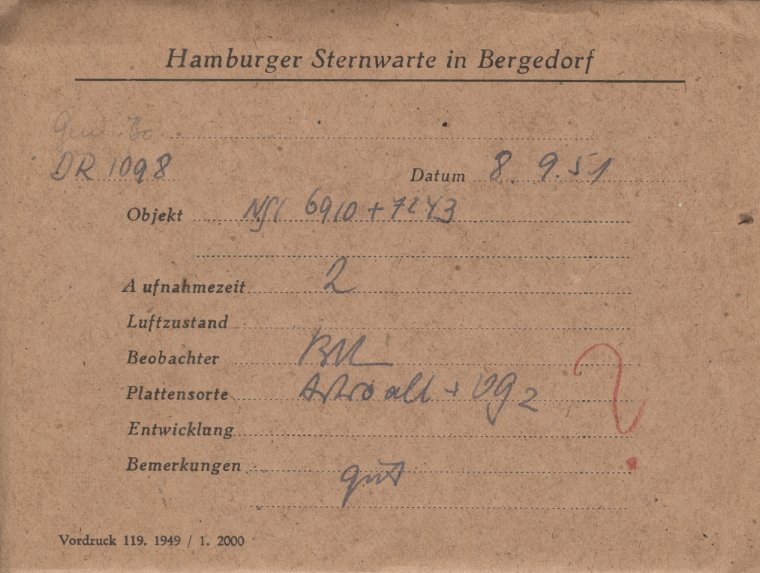 Hamburger Sternwarte in Bergedorf
DR 1098 Datum 8. 9. 51
Objekt NGC 6910 + 7243
Aufnahmezeit 2
Luftzustand
Beobachter
Plattensorte Astro all + VG 2 ?
Entwicklung
Bemerkungen gut
Vordruck 119. 1949 / 1. 2000